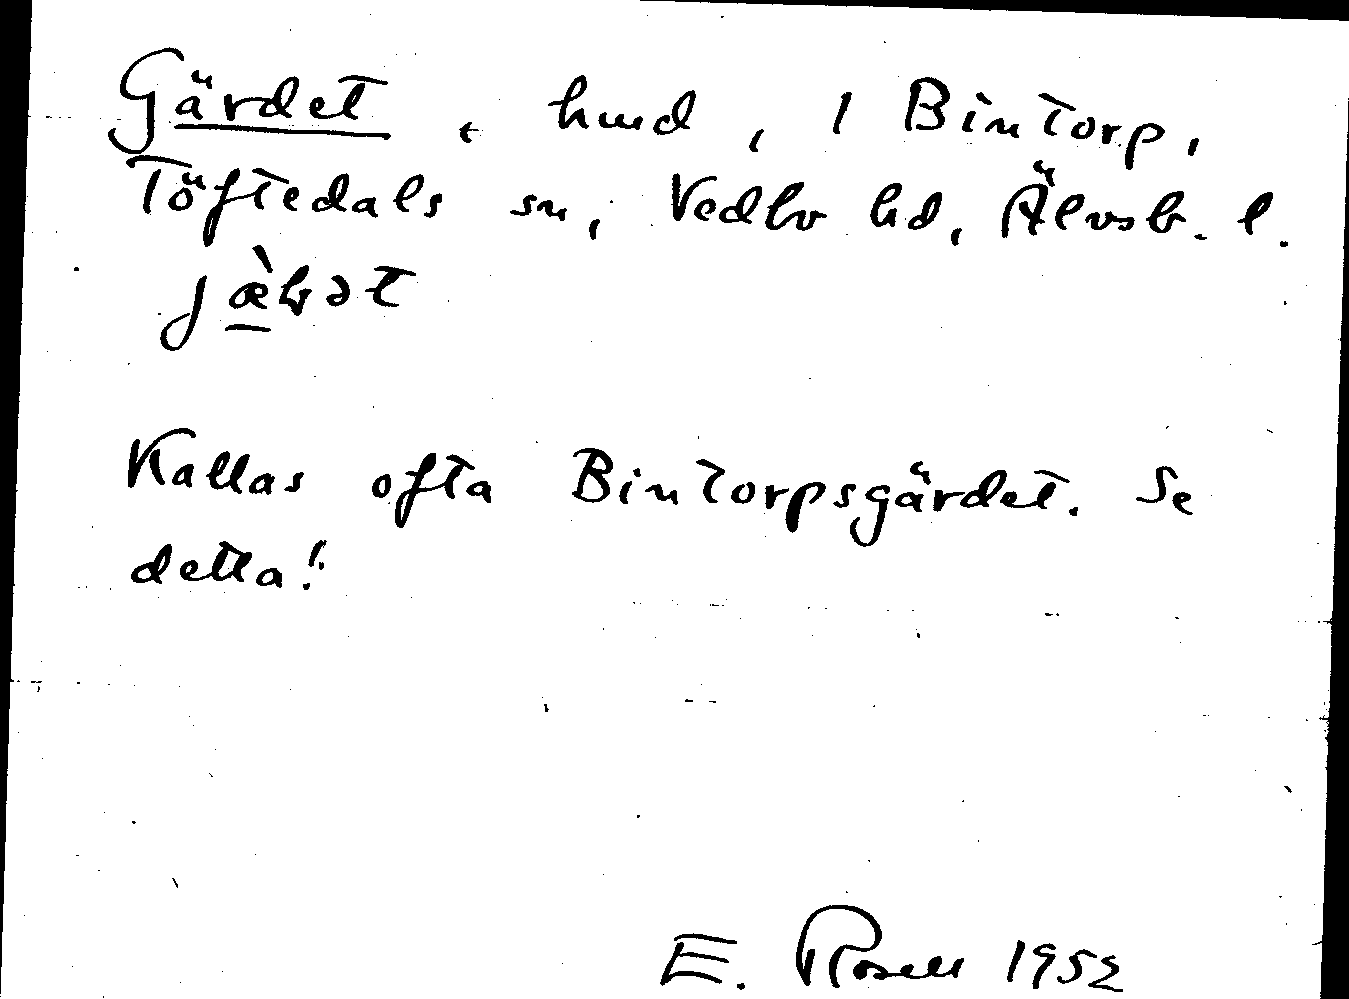 Gärdet, hmd, 1 Bintorp,
Töftedals sn, Vedbo hd, Älvsb. l.
Kallas ofta Bintorpsgärdet. Se
detta!
E. Rosell 1952